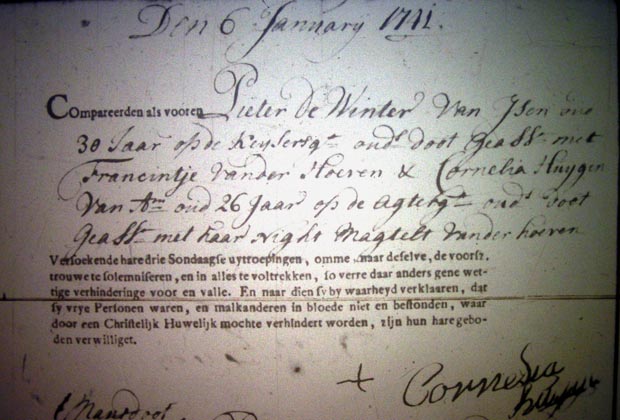 Den 6 January 1741.
Compareerden als vooren Pieter De Winter Van Ysen oud
30 Jaar op de Keysersgt. ouds. doot Geasst. met
Francintje Vander Hoeven & Cornelia Huygen
Van Am oud 26 Jaar op de Agterbgt. ouds. doot
Geasst. met haar Night Magtelt Vander hoeven
Versoekende hare drie Sondaagse uytroepingen, omme naar deselve, de voorsz.
trouwe te solemniseren, en in alles te voltrekken, so verre daar anders gene wet-
tige verhinderinge voor en valle. En naar dien sy by waarheyd verklaaren, dat
sy vrye Personen waren, en malkanderen in bloede niet en bestonden, waar
door een Christelijk Huwelijk mochte verhindert worden, zijn hun hare gebo-
den verwilliget.
+ Cornelia